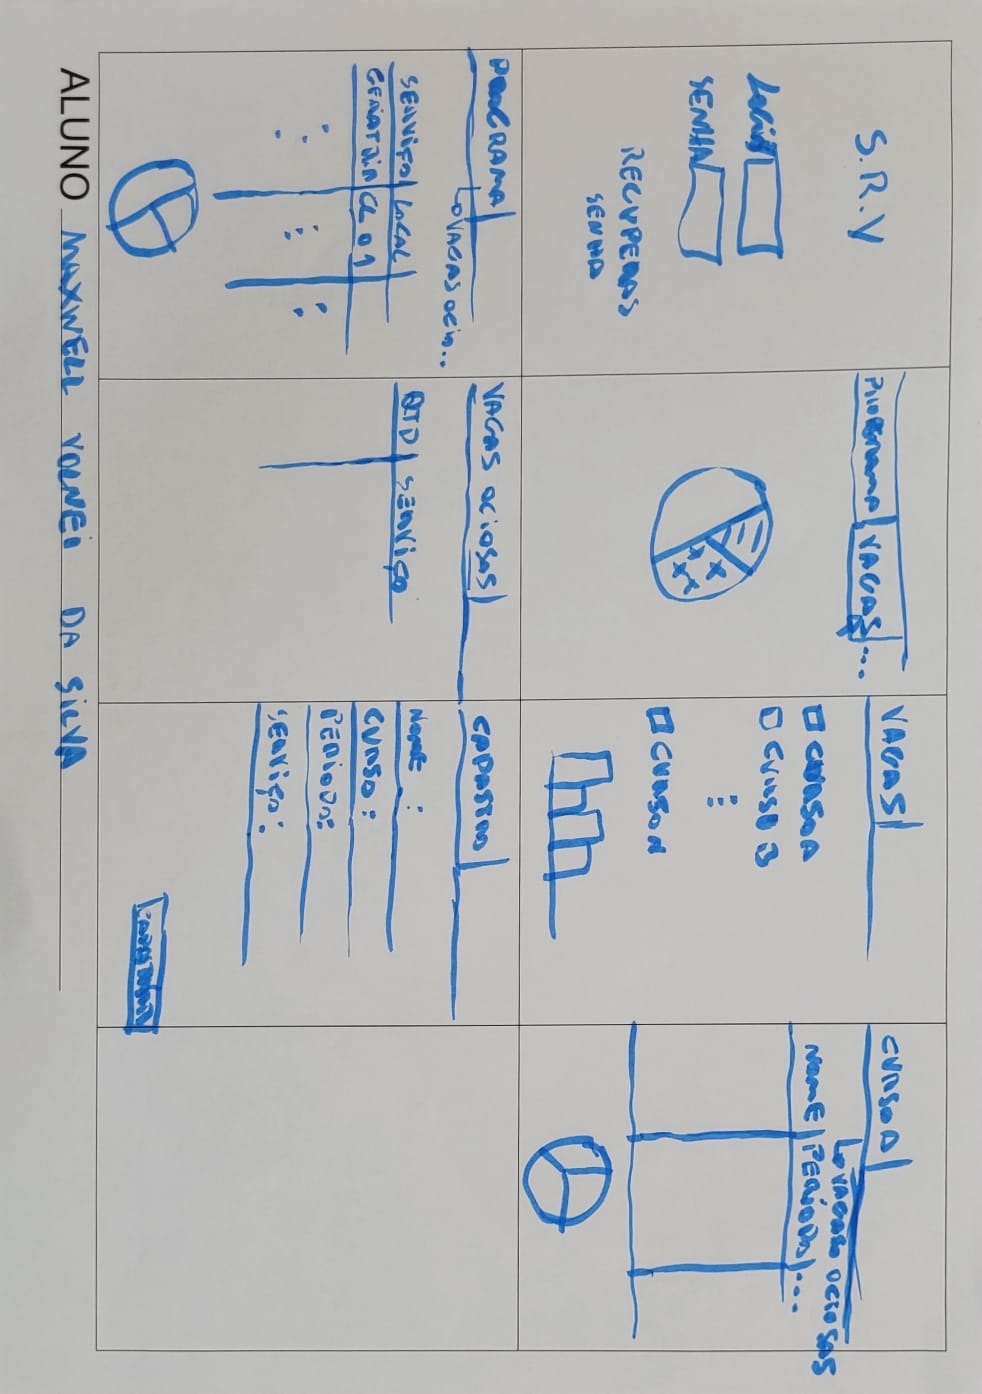 S.R.V
LOGIN
SENHA
RECUPERAR
SENHA
PROGRAMA | VAGAS | ...
VAGAS |
CURSO A
CURSO B
CURSO N
CURSO A |
VAGAS OCIOSAS
NOME | PERÍODO | ...
PROGRAMA |
VAGAS OCIO...
SERVIÇO | LOCAL
01
VAGAS OCIOSAS |
QTD | SERVIÇO
CADASTRO |
NOME :
CURSO :
PERIODO :
SERVIÇO :
CADASTRAR
ALUNO MAXWELL VOLNEI DA SILVA